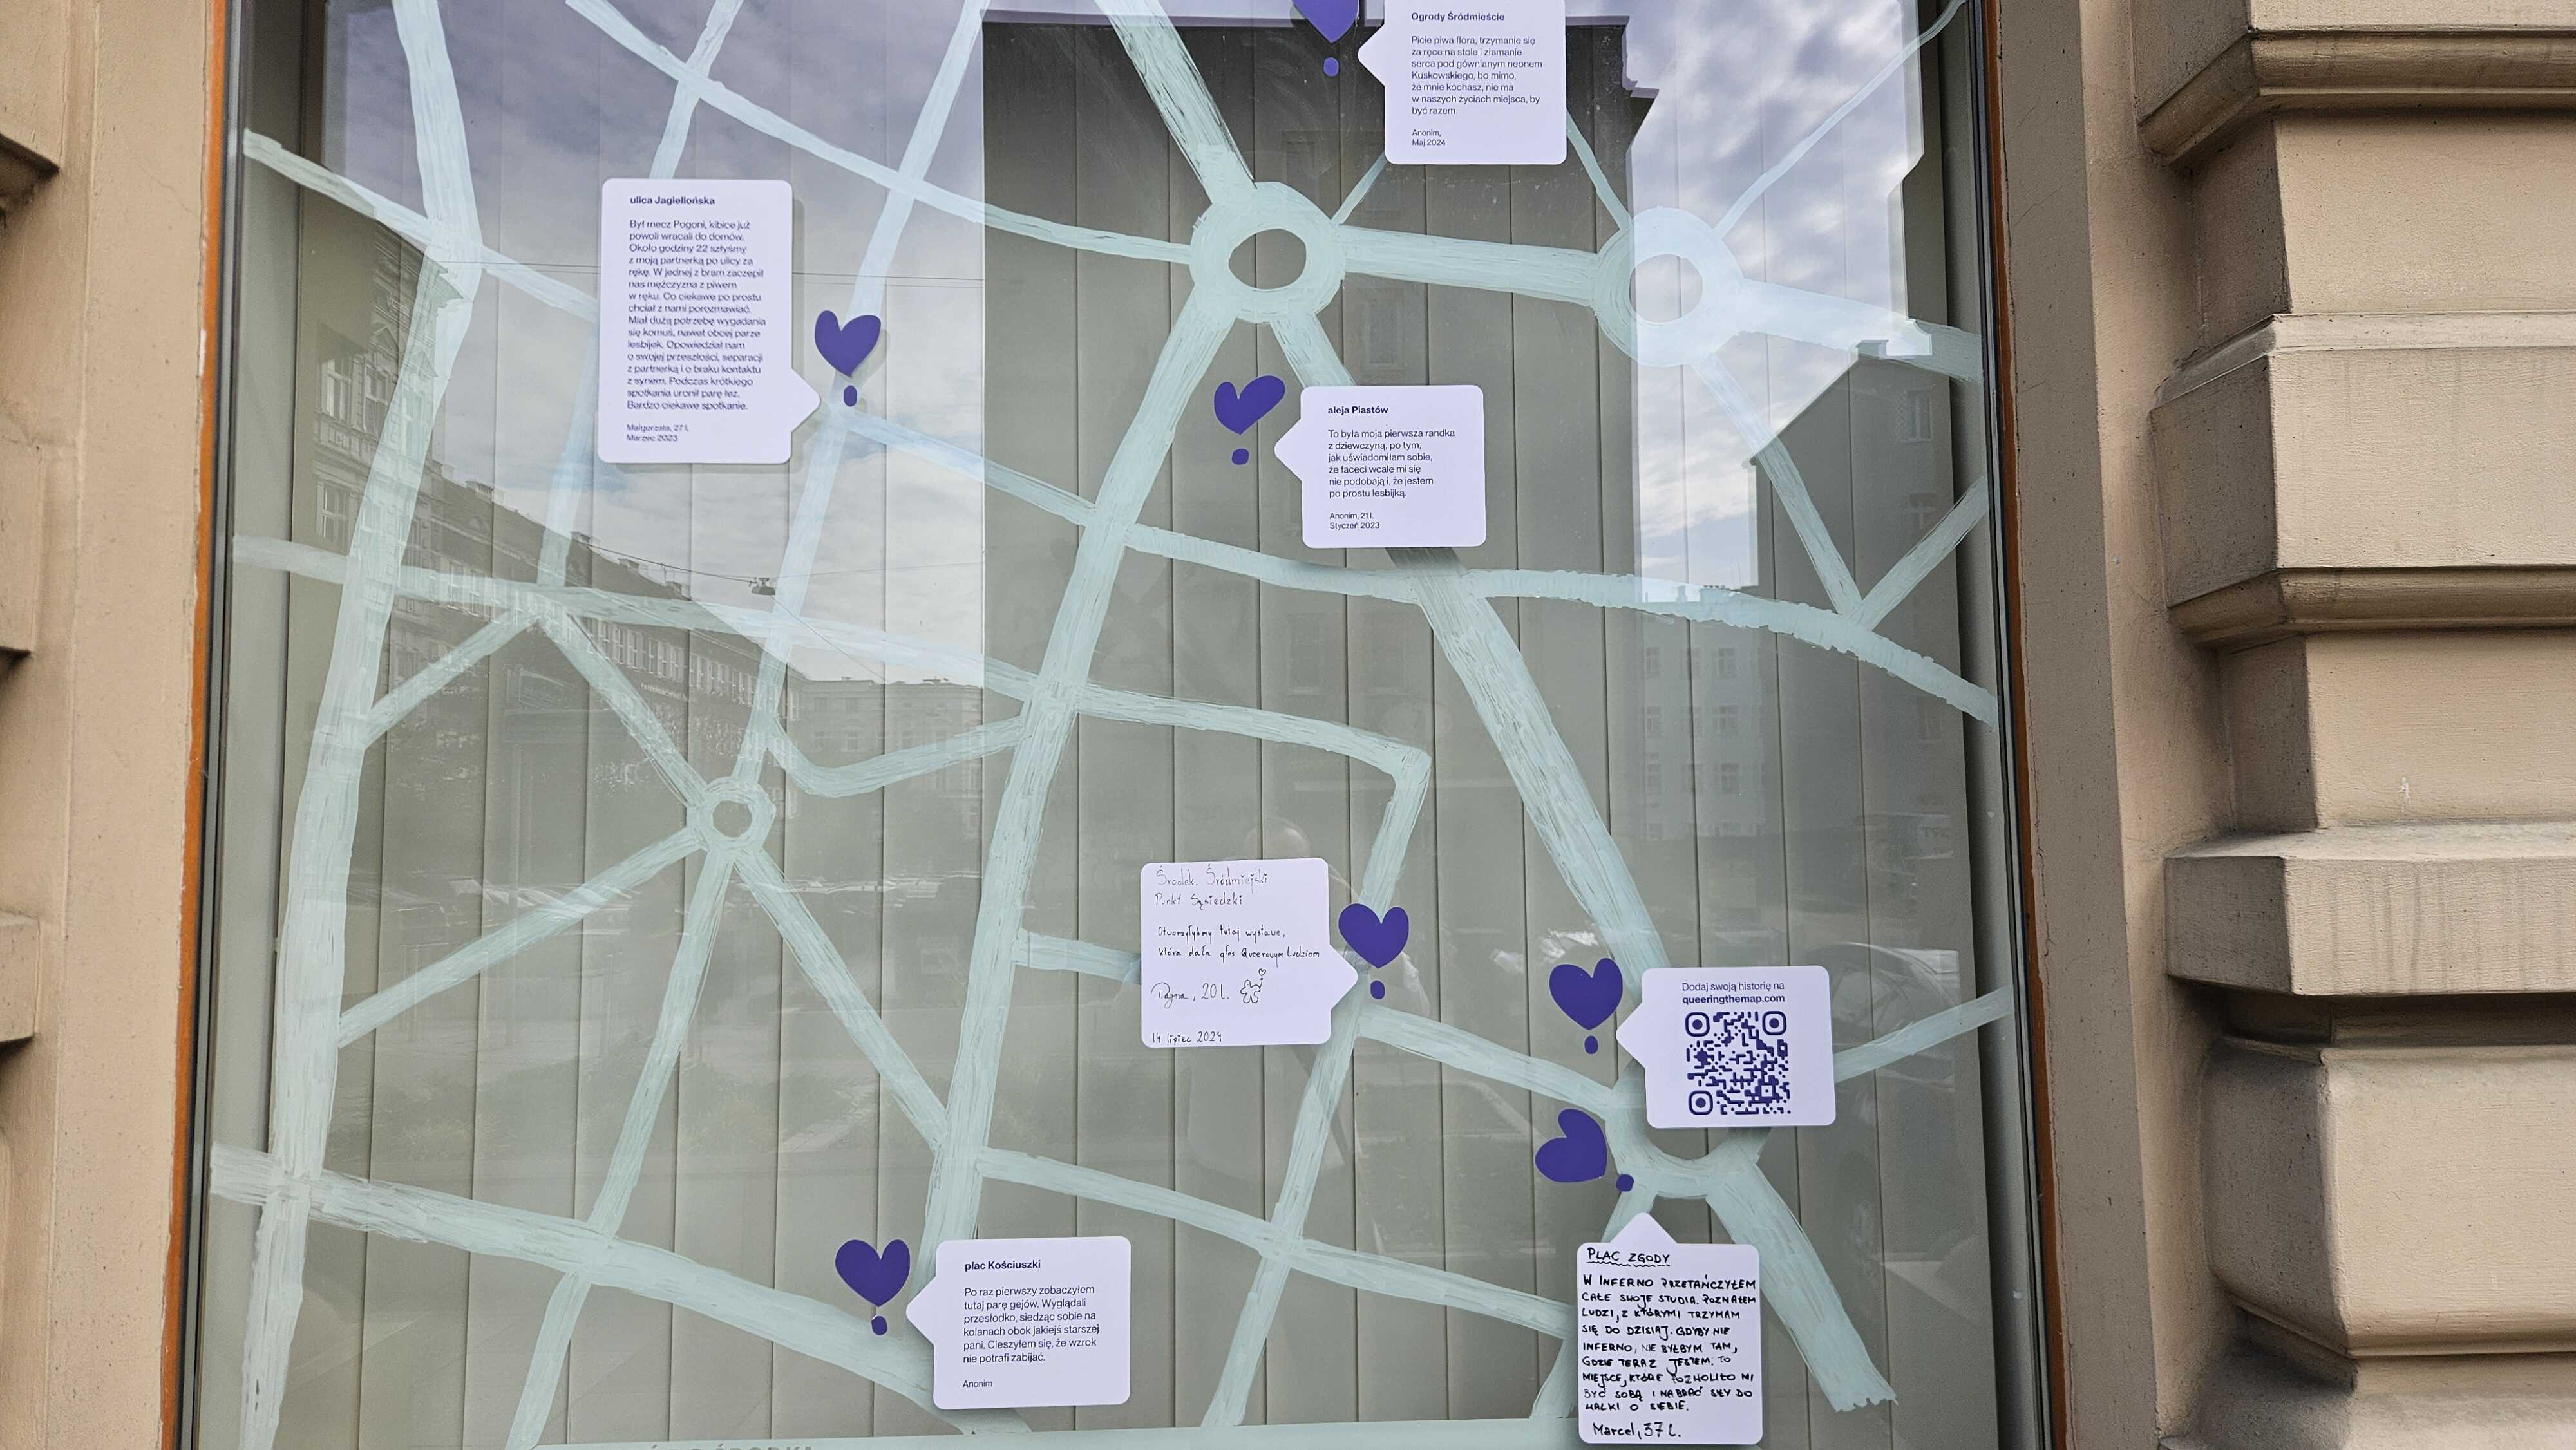 Ogrody Śródmieście
Picie piwa flora, trzymanie się
za ręce na stole i złamanie
serca pod gównianym neonem
Kuskowskiego, bo mimo,
że mnie kochasz, nie ma
w naszych życiach miejsca, by
być razem.
Anonim,
Maj 2024
ulica Jagiellońska
Był mecz Pogoni, kibice już
powoli wracali do domów.
Około godziny 22 szłyśmy
z moją partnerką po ulicy za
rękę. W jednej z bram zaczepił
nas mężczyzna z piwem
w ręku. Co ciekawe po prostu
chciał z nami porozmawiać.
Miał dużą potrzebę wygadania
się komuś, nawet obcej parze
lesbijek. Opowiedział nam
o swojej przeszłości, separacji
z partnerką i o braku kontaktu
z synem. Podczas krótkiego
spotkania uronił parę łez.
Bardzo ciekawe spotkanie.
Małgorzata, 27 l.
Marzec 2023
aleja Piastów
To była moja pierwsza randka
z dziewczyną, po tym,
jak uświadomiłam sobie,
że faceci wcale mi się
nie podobają i, że jestem
po prostu lesbijką.
Anonim, 21 l.
Styczeń 2023
Środek. Śródmiejski
Punkt Sąsiedzki
Otworzyłyśmy tutaj wystawę,
która dała głos Queerowym Ludziom
Dagna, 20 l.
14 lipiec 2024
Dodaj swoją historię na
queeringthemap.com
plac Kościuszki
Po raz pierwszy zobaczyłem
tutaj parę gejów. Wyglądali
przesłodko, siedząc sobie na
kolanach obok jakiejś starszej
pani. Cieszyłem się, że wzrok
nie potrafi zabijać.
Anonim
PLAC ZGODY
W INFERNO PRZETAŃCZYŁEM
CAŁE SWOJE STUDIA. POZNAŁEM
LUDZI, Z KTÓRYMI TRZYMAM
SIĘ DO DZISIAJ. GDYBY NIE
INFERNO, NIE BYŁBYM TAM,
GDZIE TERAZ JESTEM. TO
MIEJSCE, KTÓRE POZWOLIŁO MI
BYĆ SOBĄ I NABRAĆ SIŁY DO
WALKI O SIEBIE.
Marcel, 37 l.